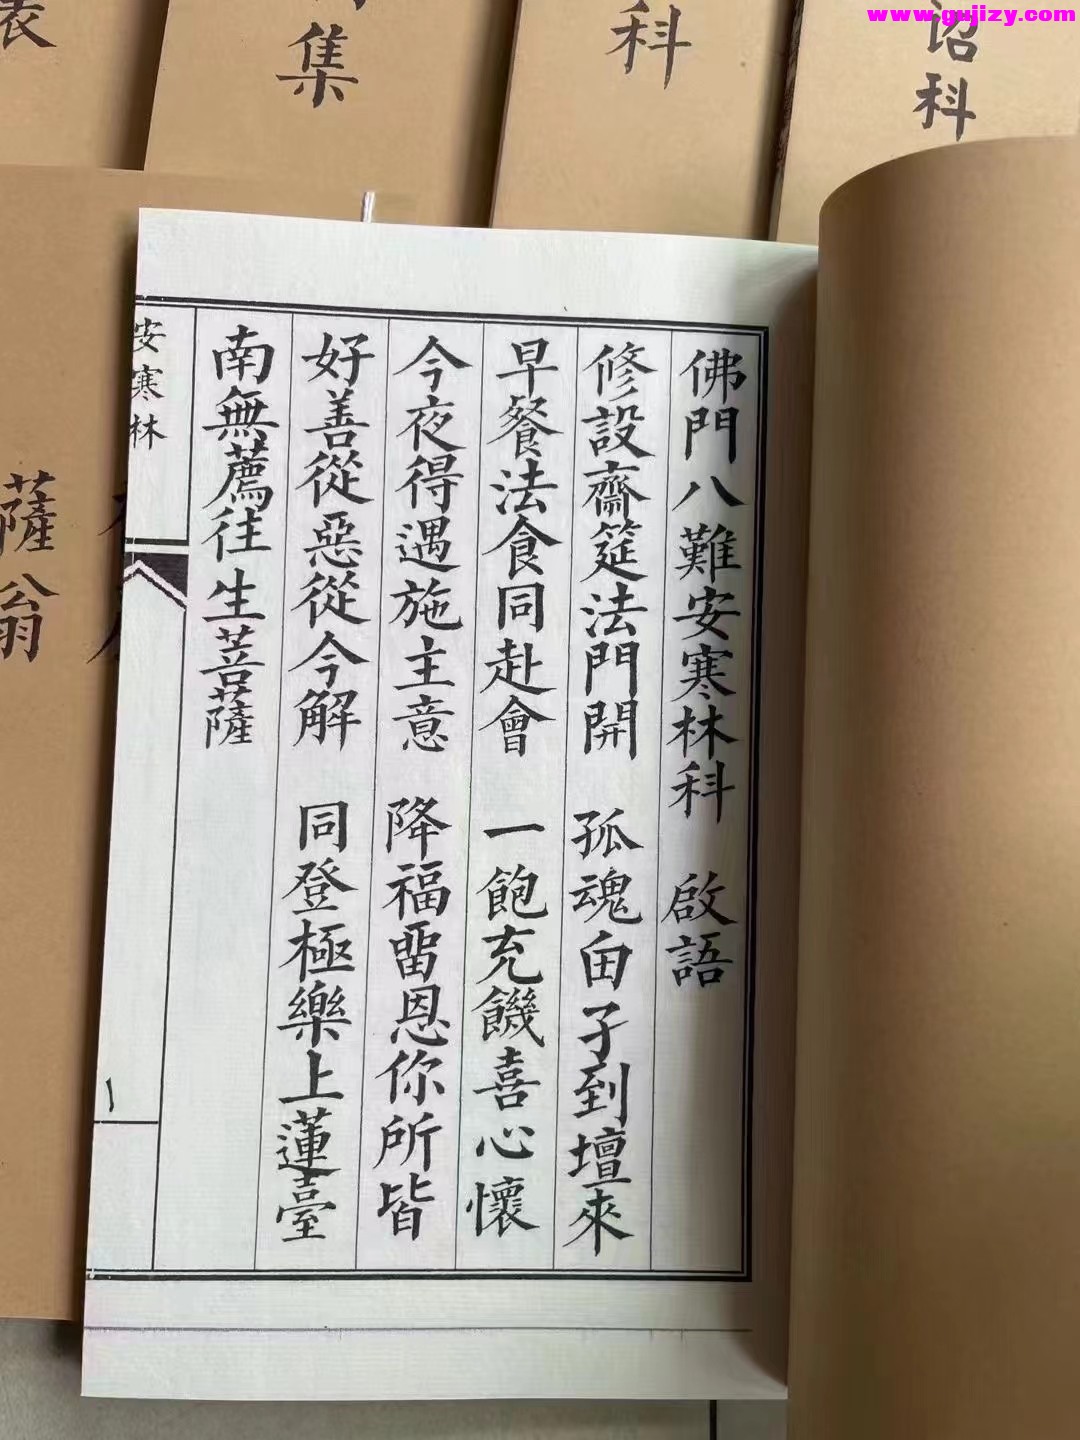 www.gujizy.com
集
科
诏科
佛門八難安寒林科 啟語
修設齋筵法門開 孤魂甶子到壇來
早餐法食同赴會 一飽充饑喜心懷
今夜得遇施主意 降福㽞恩你所皆
好善從惡從今解 同登極樂上蓮臺
南無薦往生菩薩
安寒林
一
薩翁